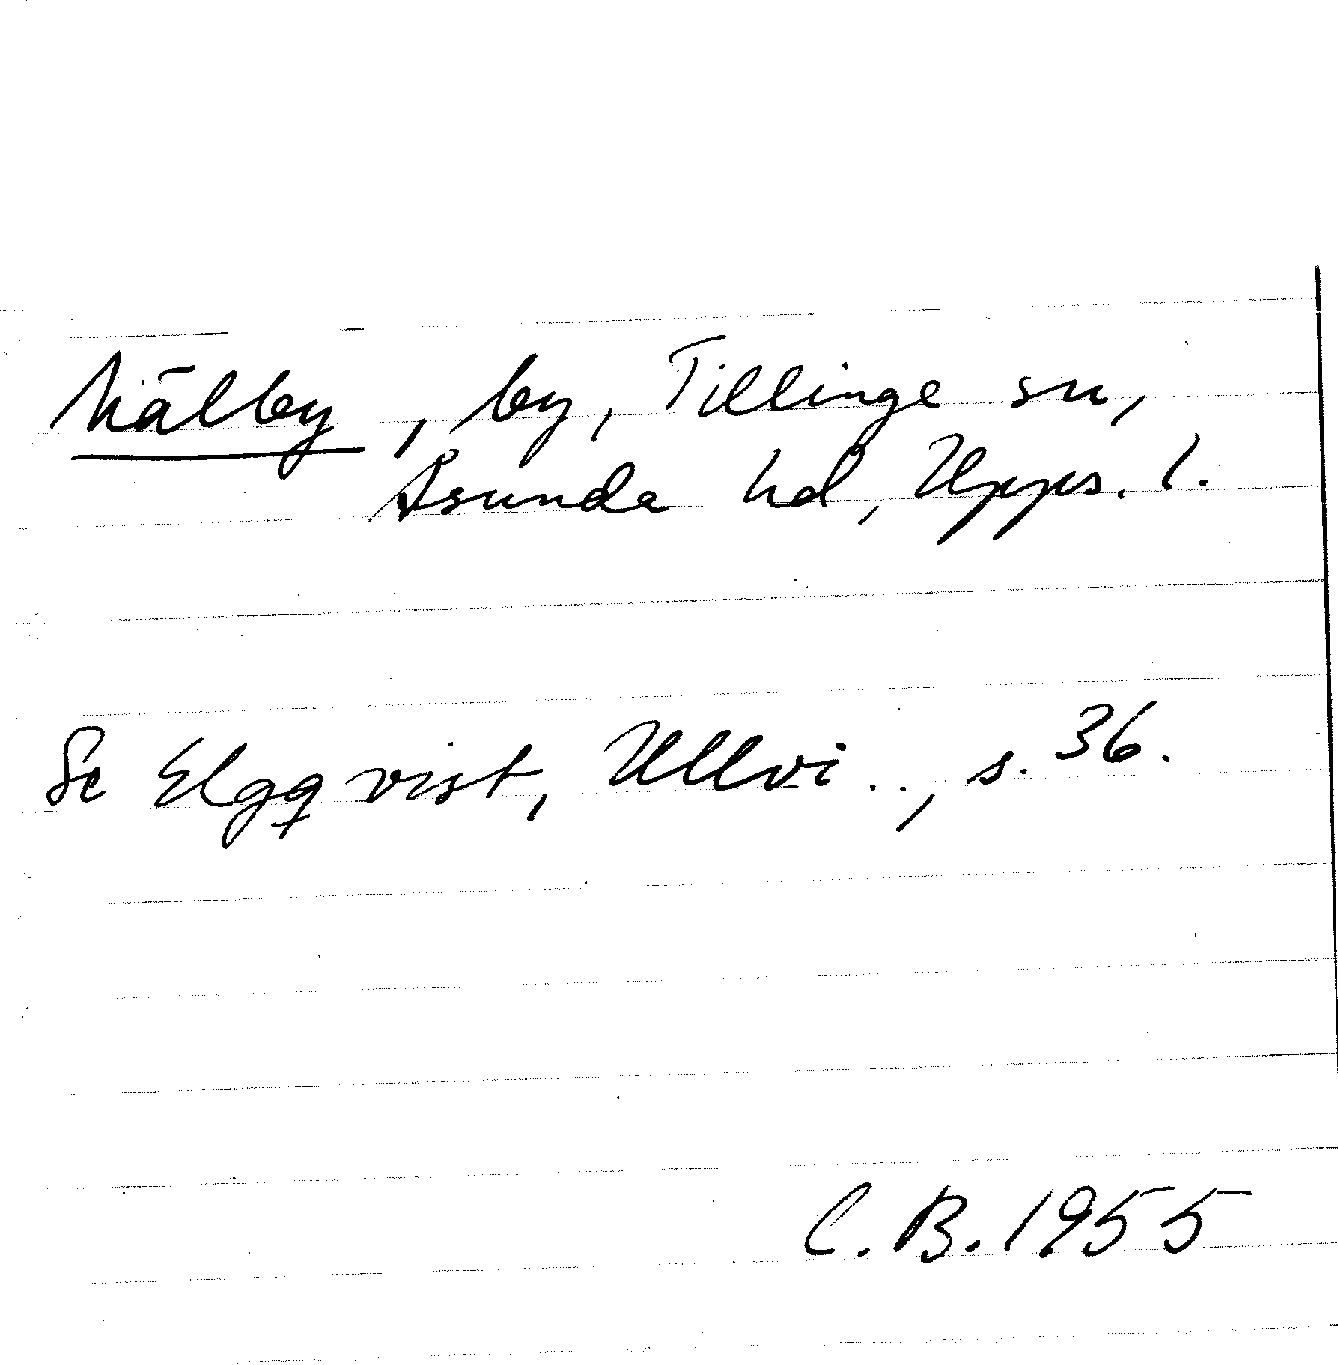 Mälby, by, Tillinge sn,
Åsunda hd, Upps. l.
Se Elgqvist, Ullvi .., s. 36.
C. B. 1955